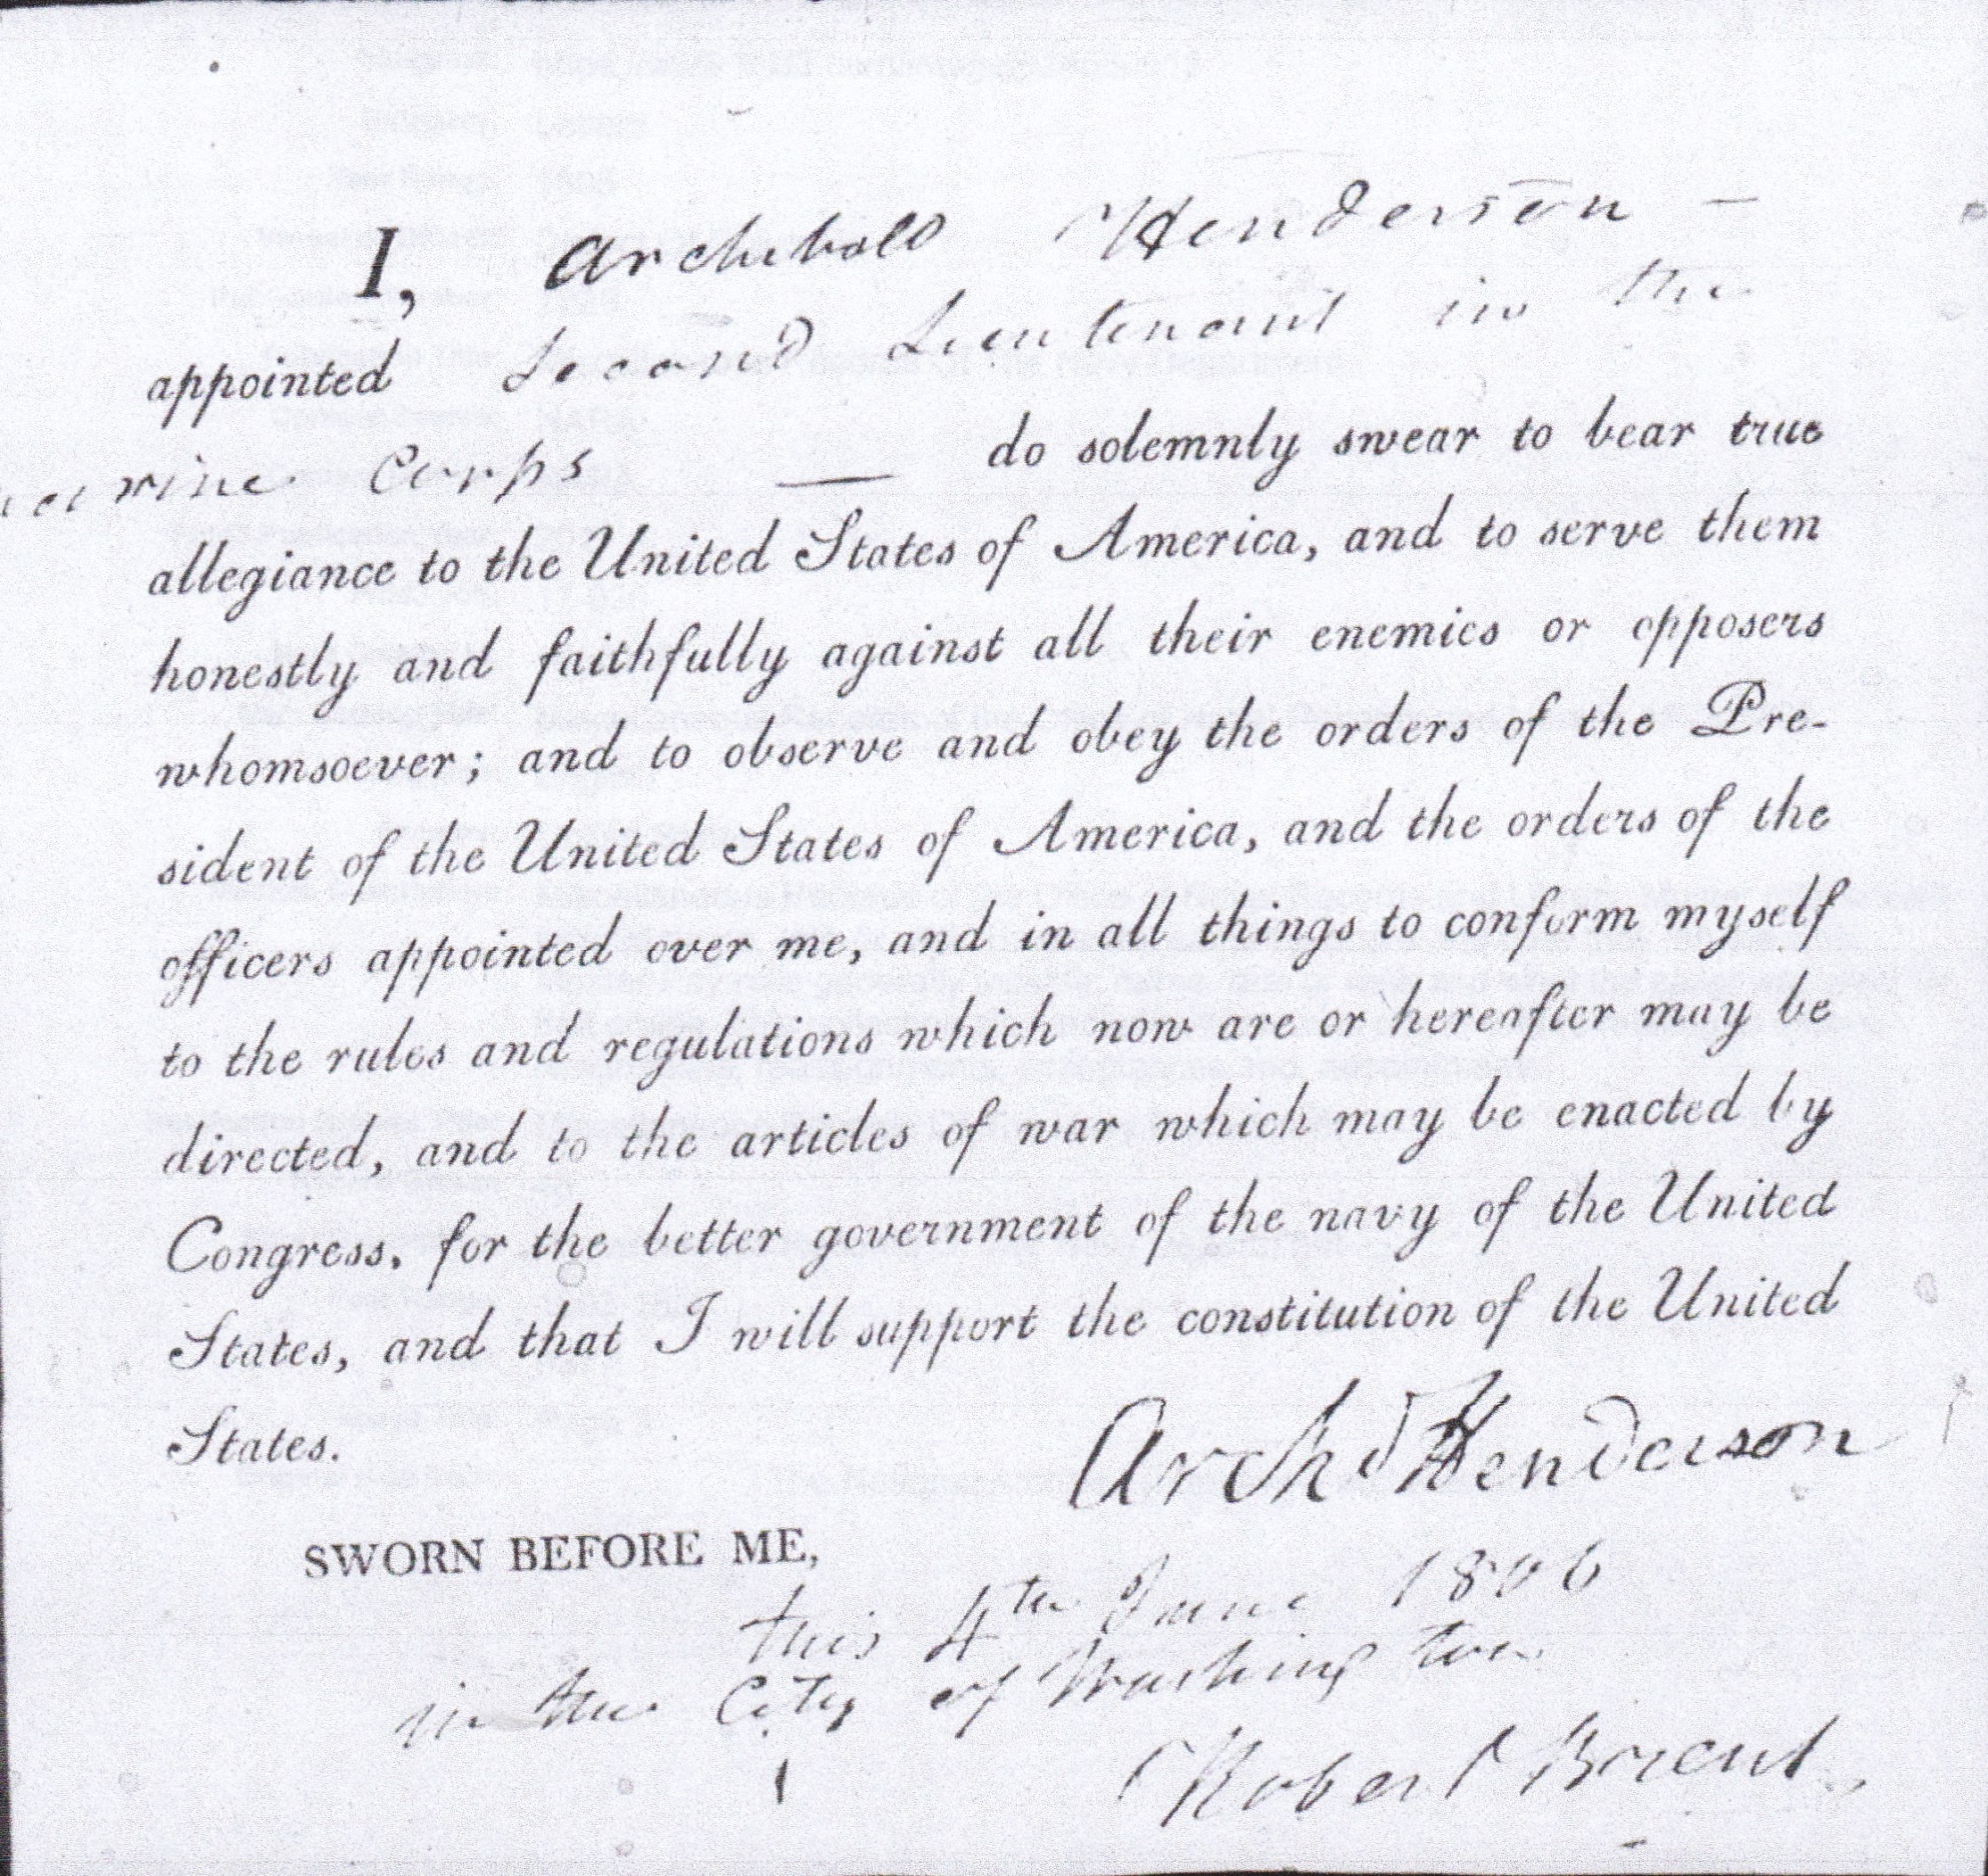 I, Archibald Henderson —
appointed Second Lieutenant in the
marine Corps — do solemnly swear to bear true
allegiance to the United States of America, and to serve them
honestly and faithfully against all their enemies or opposers
whomsoever; and to observe and obey the orders of the Pre-
sident of the United States of America, and the orders of the
officers appointed over me, and in all things to conform myself
to the rules and regulations which now are or hereafter may be
directed, and to the articles of war which may be enacted by
Congress, for the better government of the navy of the United
States, and that I will support the constitution of the United
States.
Archd Henderson
SWORN BEFORE ME,
this 4th June 1806
in the City of Washington
Robert Brent